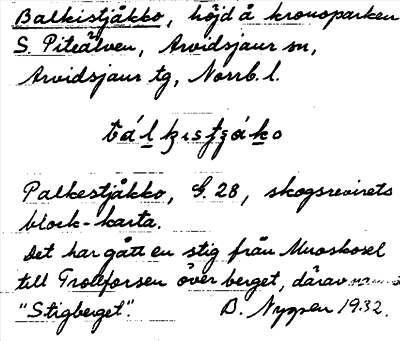 Balkistjåkko, höjd å kronoparken
S. Piteälven, Arvidsjaur sn,
Arvidsjaur tg, Norrb. l.
Palkestjåkko, G. 28, skogsrevirets
block-karta.
Det har gått en stig från Muoskosel
till Trollforsen över berget, därav
"Stigberget". B. Nygren 1932.